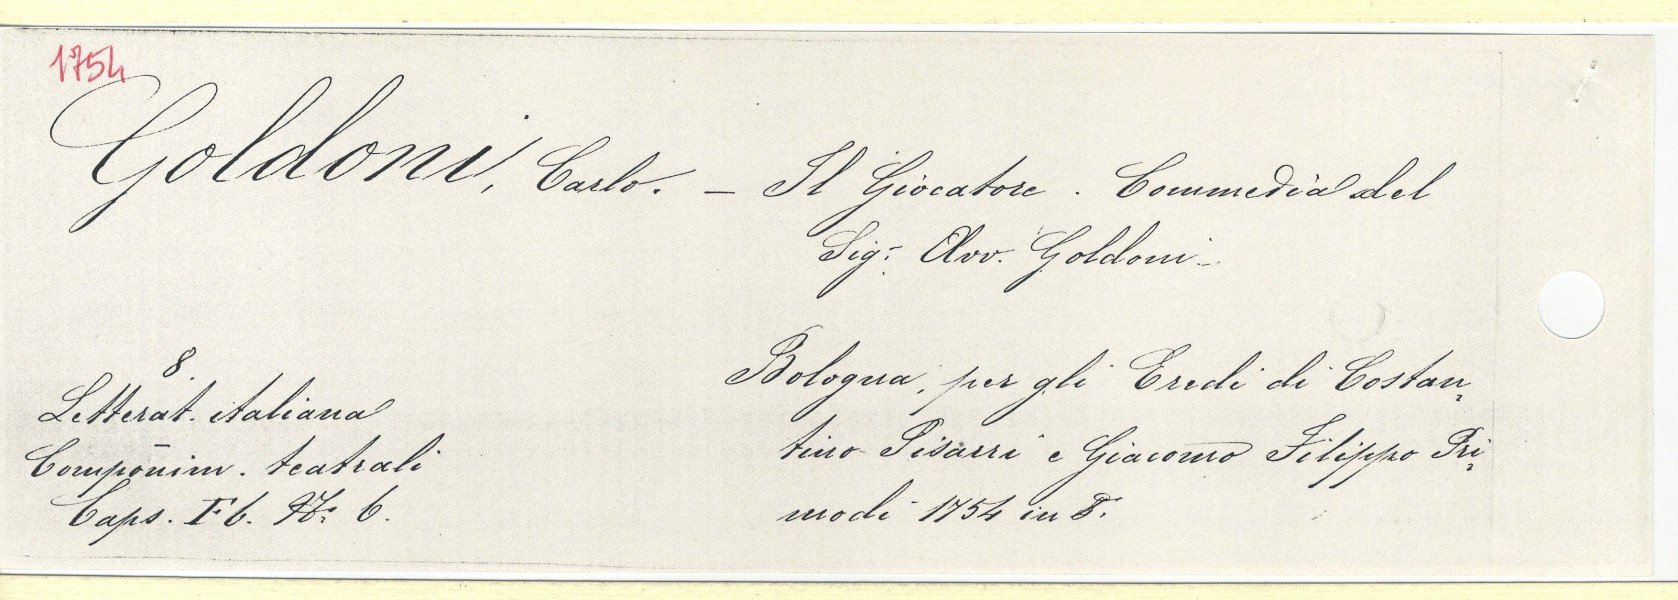 1754
Goldoni, Carlo. — Il Giocatore. Commedia del
Sig.r Avv. Goldoni
Bologna, per gli Eredi di Costan,
tino Pisarri e Giacomo Filippo Pri,
modi 1754 in 8.
8
Letterat. italiana
Componim. teatrali
Caps. F6. N.° 6.